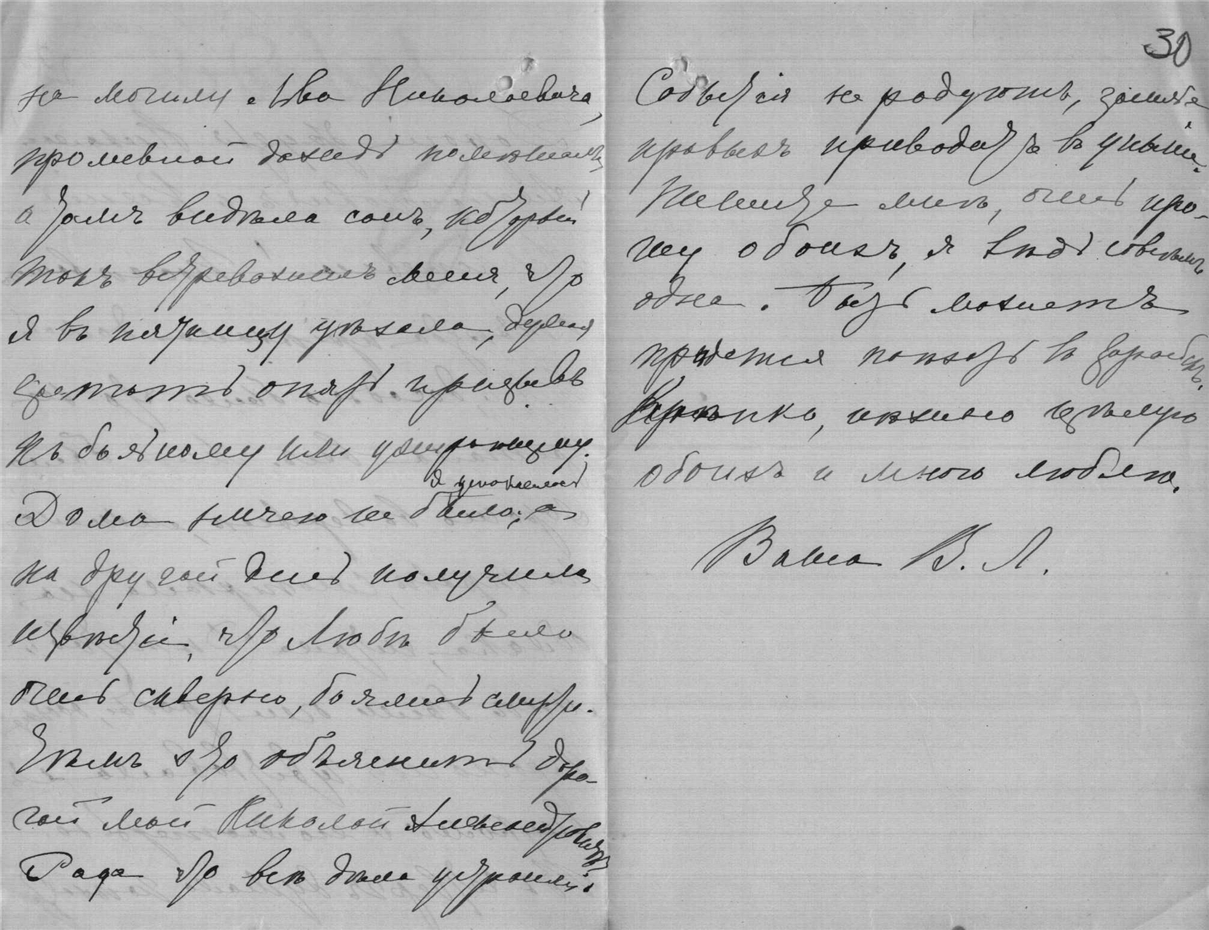 на могилу Льва Николаевича,
проливной дождь помешалъ,
а тамъ видѣла сонъ, который
такъ встревожилъ меня, что
я въ пятницу уѣхала, думая
застать опять призывъ
къ больному или умирающему.
я успокоилась
Дома ничего не было, а
на другой день получила
извѣстіе, что Любѣ было
очень скверно, боялись смерти.
Чѣмъ это объяснить доро-
гой мой Николай Александровичъ?
Рада что всѣ дѣла устроили.
30
Событія не радуютъ,
правыхъ приводятъ въ уныніе.
Пишите мнѣ, очень про-
шу обоихъ, я вѣдь совсѣмъ
одна. Быть можетъ
придется поѣхать въ
Крѣпко, нѣжно цѣлую
обоихъ и много люблю.
Ваша В. Л.